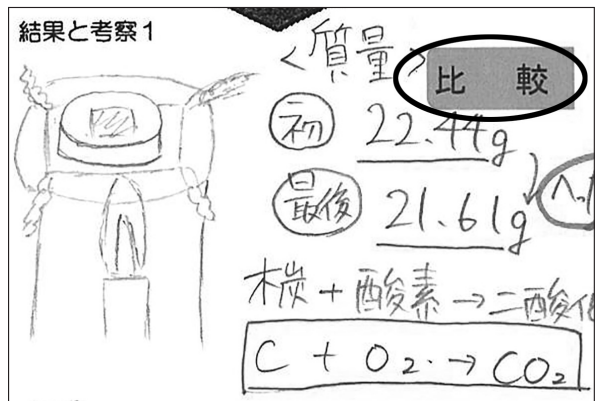 結果と考察1
<質量>
比 較
初 22.44g
最後 21.61g
へっ
木炭 + 酸素 → 二酸化
C + O₂ → CO₂